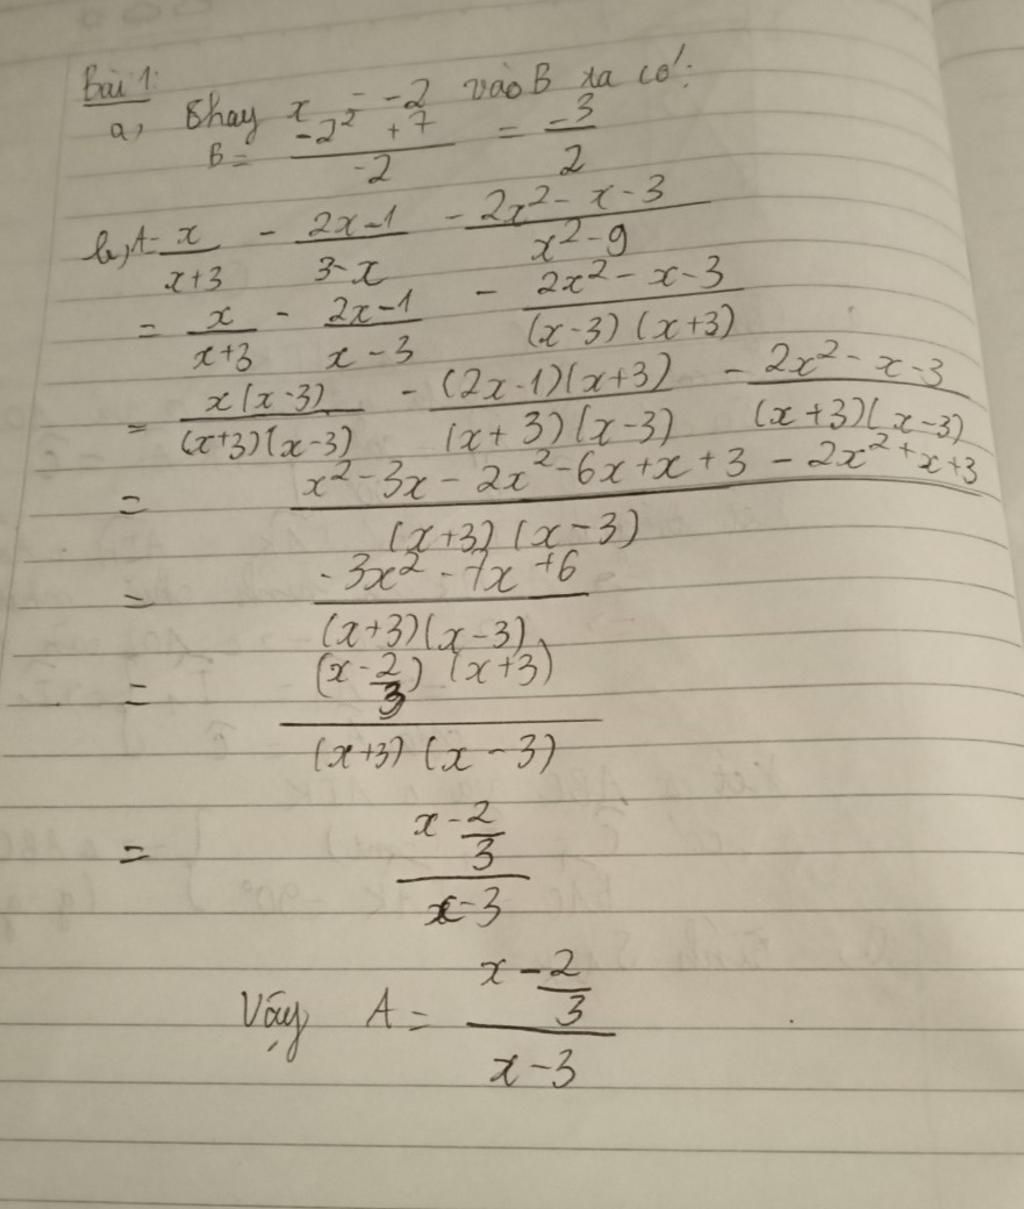 Bài 1:
a, Thay x = -2 vào B ta có:
B = (-2² + 7)/(-2) = (-3)/2
b, A = x/(x+3) - (2x-1)/(3-x) - (2x² - x - 3)/(x² - 9)
= x/(x+3) - (2x-1)/(x-3) - (2x² - x - 3)/((x-3)(x+3))
= x(x-3)/((x+3)(x-3)) - (2x-1)(x+3)/((x+3)(x-3)) - (2x² - x - 3)/((x+3)(x-3))
= (x² - 3x - 2x² - 6x + x + 3 - 2x² + x + 3)/((x+3)(x-3))
= (-3x² - 7x + 6)/((x+3)(x-3))
= (x - 2/3)(x+3)/((x+3)(x-3))
= (x - 2/3)/(x-3)
Vậy A = (x - 2/3)/(x-3)